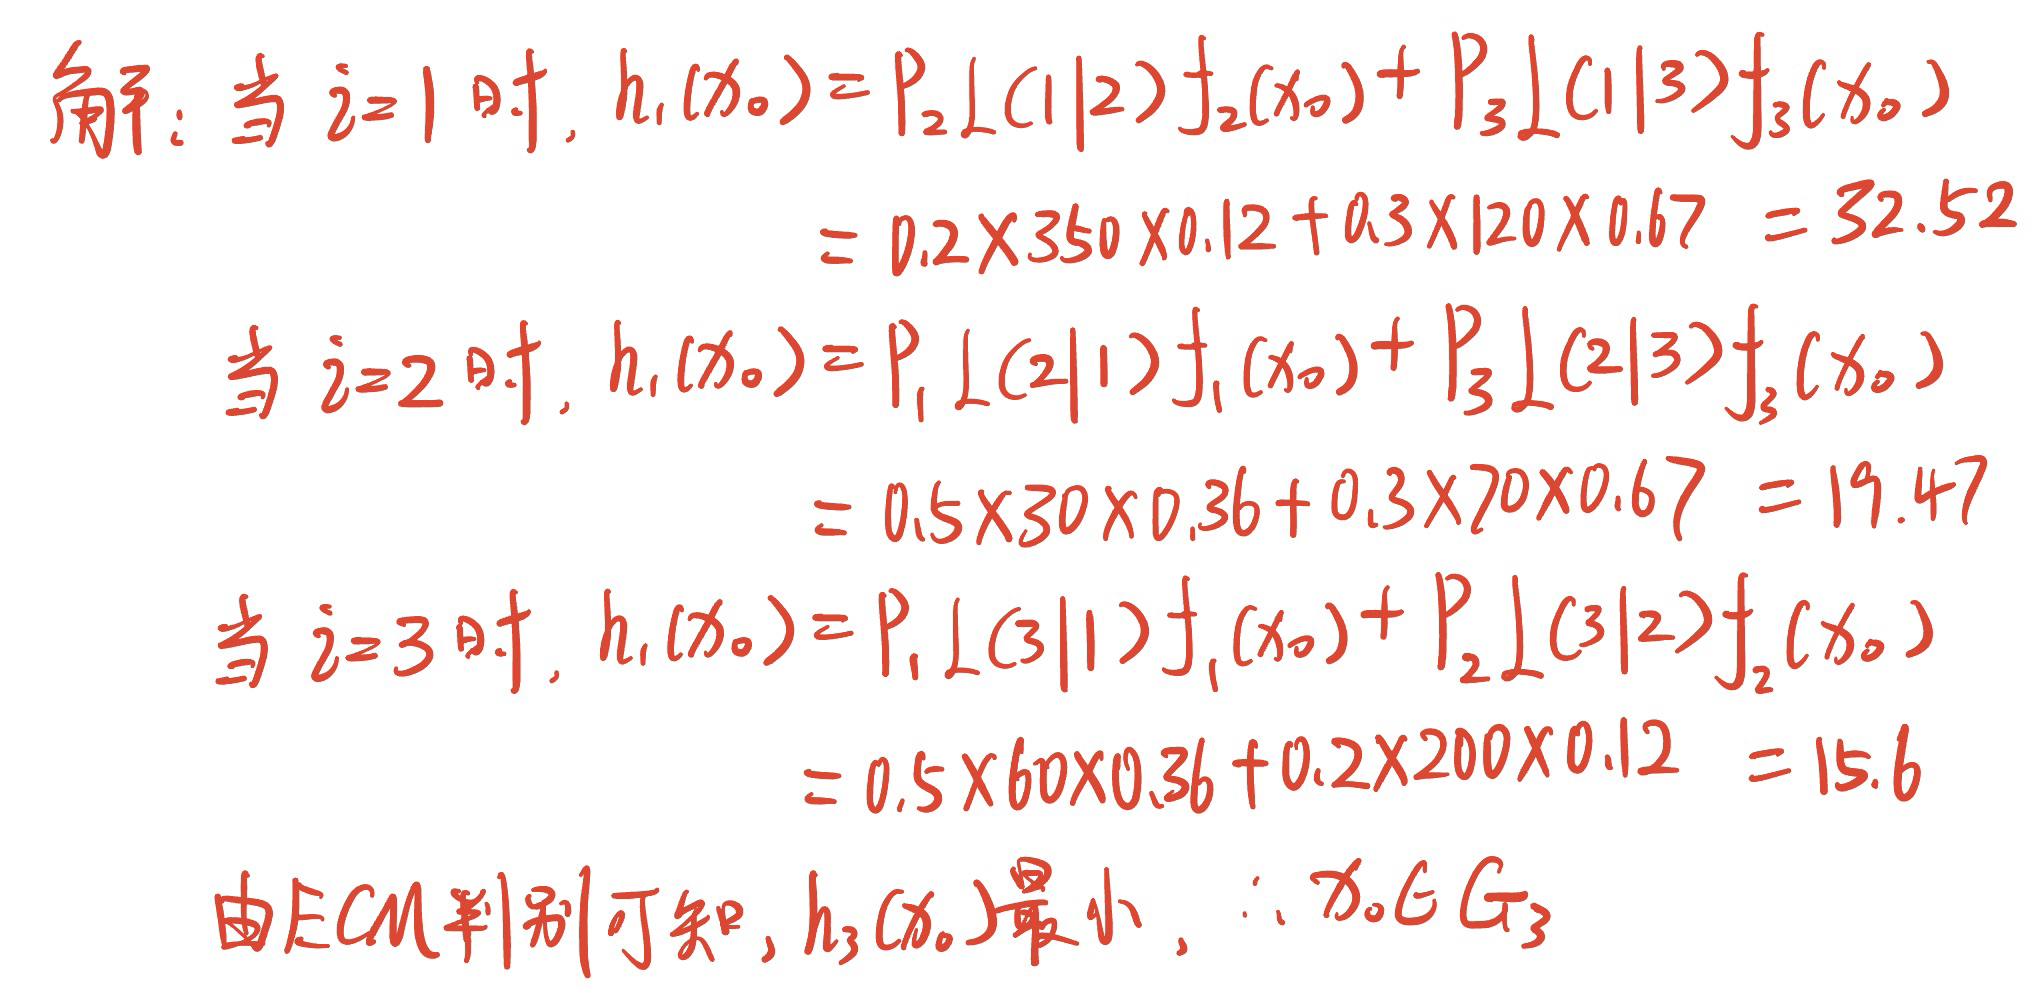 解：当 i=1 时, h₁(x₀) = P₂L(1|2)f₂(x₀) + P₃L(1|3)f₃(x₀)
= 0.2×350×0.12+0.3×120×0.67 = 32.52
当 i=2 时, h₁(x₀) = P₁L(2|1)f₁(x₀) + P₃L(2|3)f₃(x₀)
= 0.5×30×0.36+0.3×70×0.67 = 19.47
当 i=3 时, h₁(x₀) = P₁L(3|1)f₁(x₀) + P₂L(3|2)f₂(x₀)
= 0.5×60×0.36+0.2×200×0.12 = 15.6
由ECM判别可知, h₃(x₀)最小, ∴ x₀∈G₃